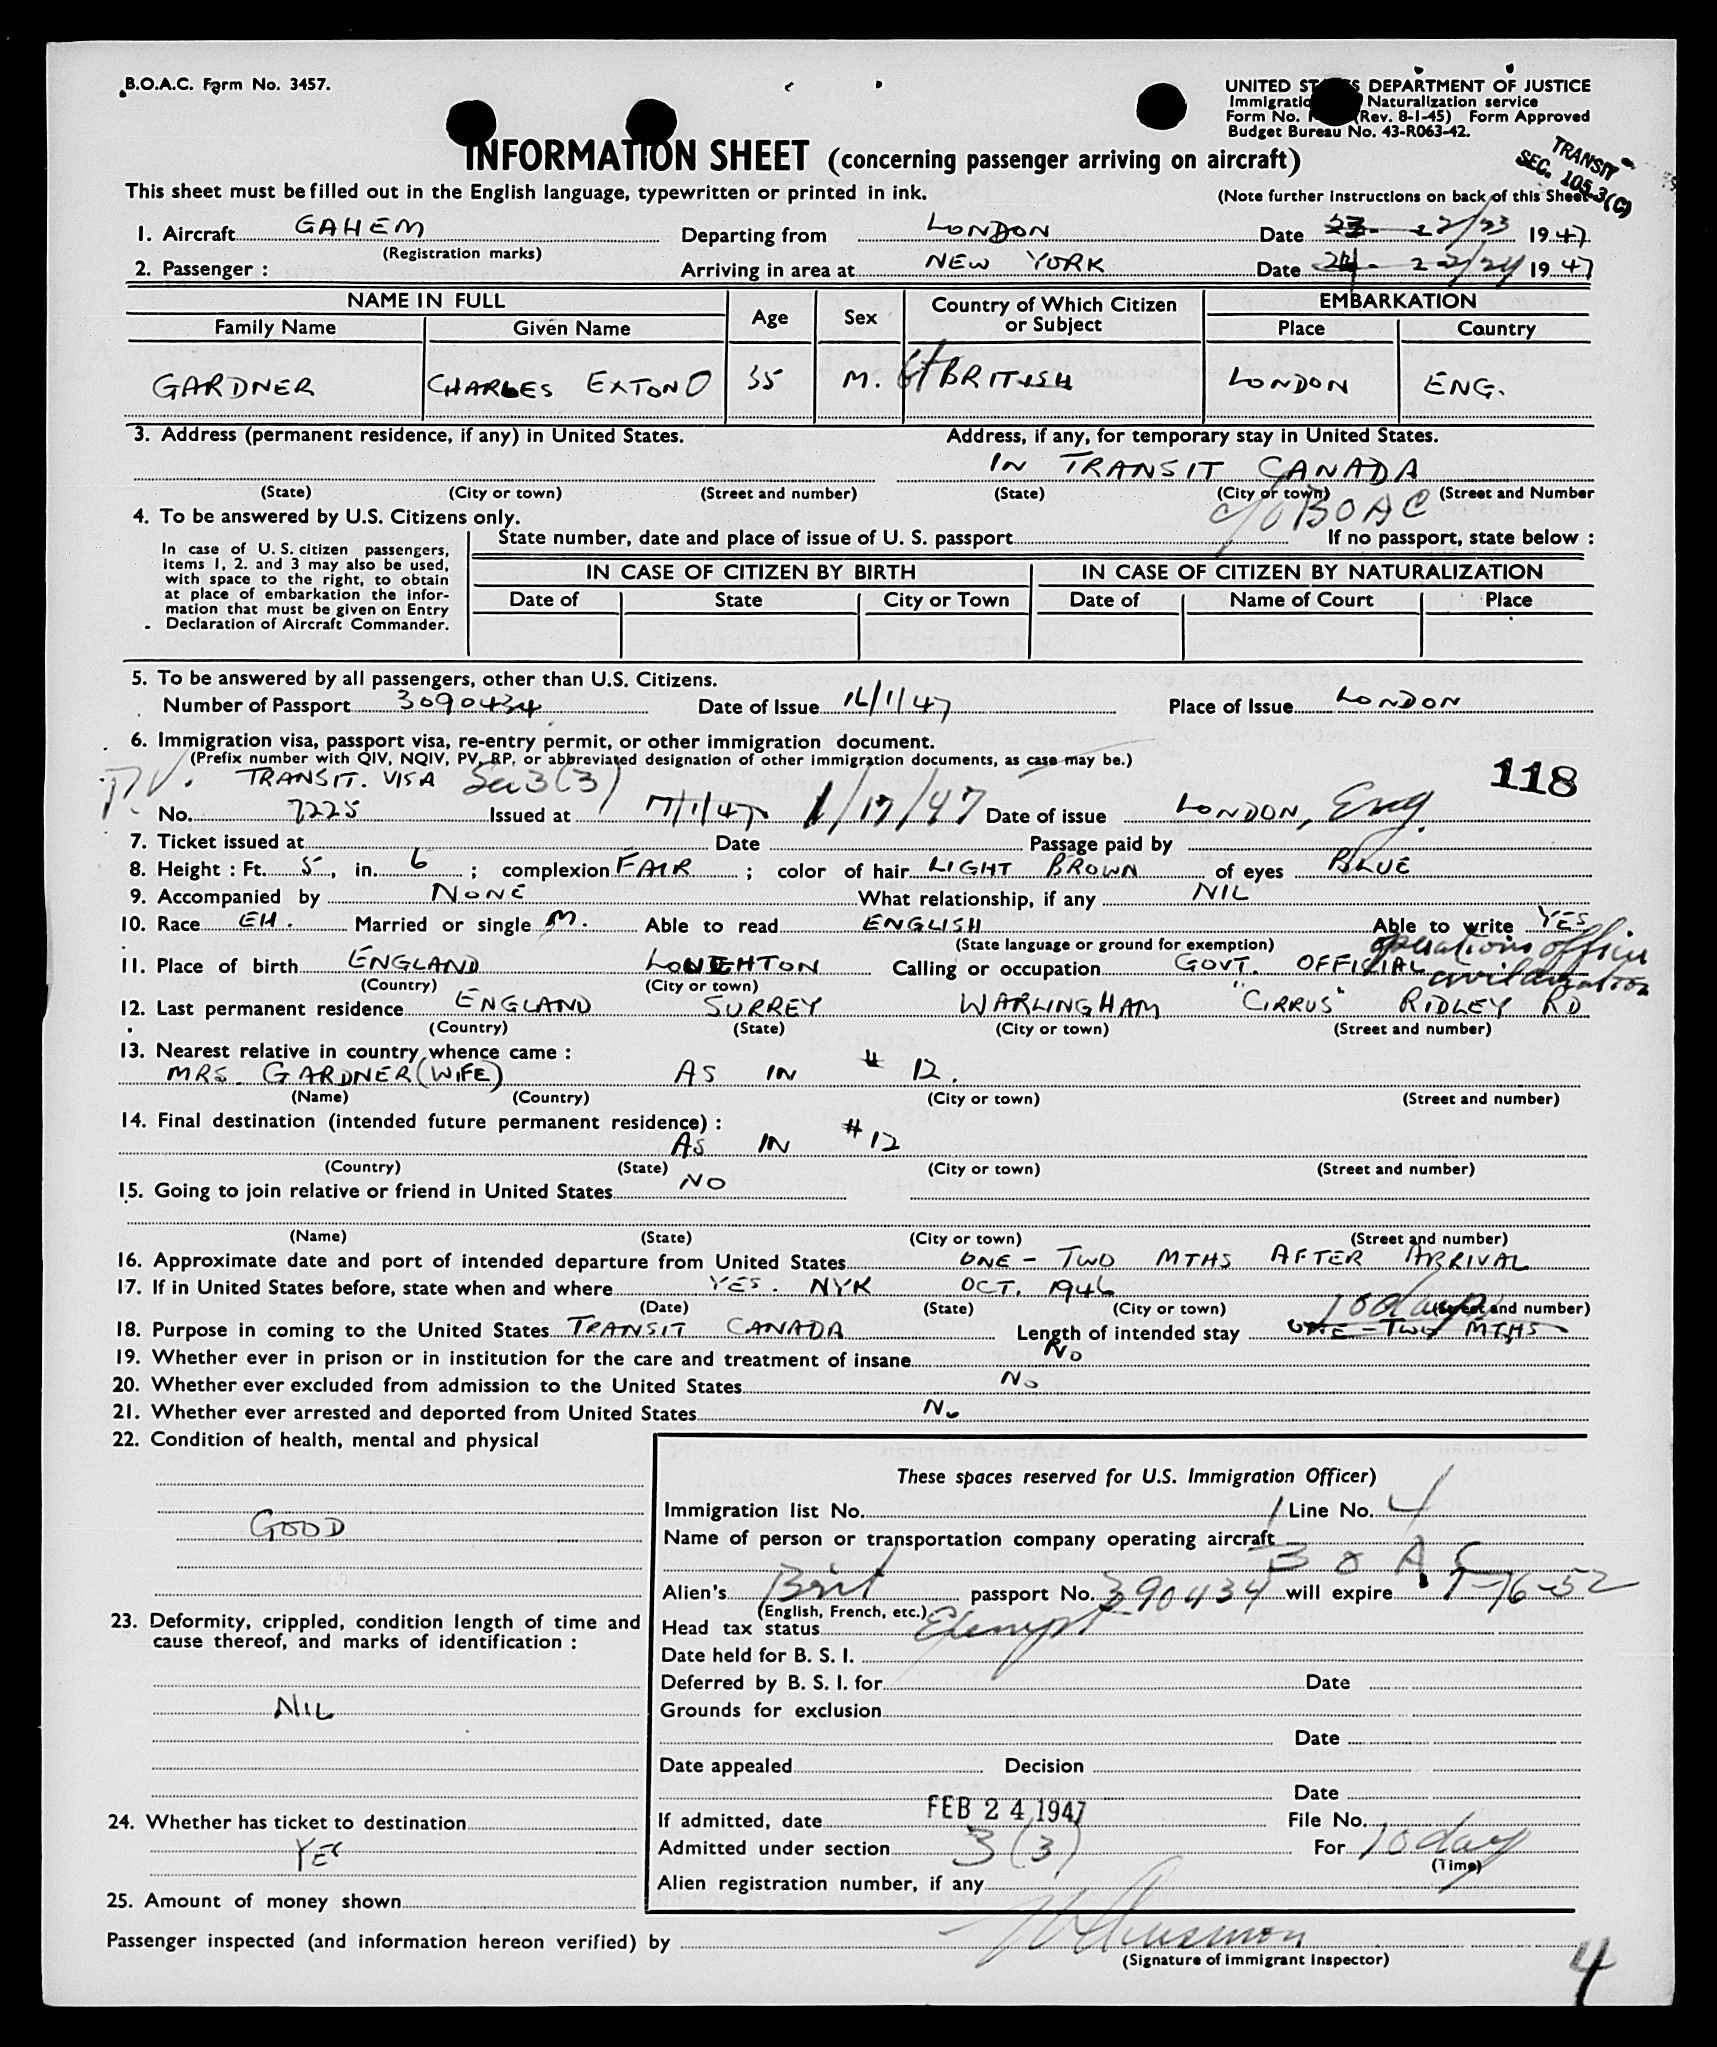 B.O.A.C. Form No. 3457.
UNITED STATES DEPARTMENT OF JUSTICE
Immigration Naturalization service
Form No. I (Rev. 8-1-45) Form Approved
Budget Bureau No. 43-R063-42.
TRANSIT
SEC. 105.3(C)
INFORMATION SHEET (concerning passenger arriving on aircraft)
This sheet must be filled out in the English language, typewritten or printed in ink.
(Note further instructions on back of this Sheet
1. Aircraft GAHEM Departing from LONDON Date 2/23 1947
(Registration marks)
2. Passenger : Arriving in area at NEW YORK Date 2/24 1947
NAME IN FULL Age Sex Country of Which Citizen or Subject EMBARKATION
Family Name Given Name Place Country
GARDNER CHARLES EXTON O 35 M. Gt BRITISH LONDON ENG.
3. Address (permanent residence, if any) in United States. Address, if any, for temporary stay in United States.
IN TRANSIT CANADA
(State) (City or town) (Street and number) (State) (City or town) (Street and Number
c/o BOAC
4. To be answered by U.S. Citizens only.
State number, date and place of issue of U. S. passport If no passport, state below :
In case of U. S. citizen passengers,
items 1, 2. and 3 may also be used,
with space to the right, to obtain
at place of embarkation the infor-
mation that must be given on Entry
Declaration of Aircraft Commander.
IN CASE OF CITIZEN BY BIRTH IN CASE OF CITIZEN BY NATURALIZATION
Date of State City or Town Date of Name of Court Place
5. To be answered by all passengers, other than U.S. Citizens.
Number of Passport 3090434 Date of Issue 16/1/47 Place of Issue LONDON
6. Immigration visa, passport visa, re-entry permit, or other immigration document.
(Prefix number with QIV, NQIV, PV, RP, or abbreviated designation of other immigration documents, as case may be.)
P.V. TRANSIT. VISA Sec 3(3) 118
No. 7225 Issued at 17/1/47 1/17/47 Date of issue LONDON, Eng.
7. Ticket issued at Date Passage paid by
8. Height : Ft. 5, in. 6 ; complexion FAIR ; color of hair LIGHT BROWN of eyes BLUE
9. Accompanied by NONE What relationship, if any NIL
10. Race EH. Married or single M. Able to read ENGLISH Able to write YES
(State language or ground for exemption)
operations officer
11. Place of birth ENGLAND Calling or occupation GOVT. OFFICIAL civil aviation
(Country) (City or town)
12. Last permanent residence ENGLAND SURREY WARLINGHAM "CIRRUS" RIDLEY RD
(Country) (State) (City or town) (Street and number)
13. Nearest relative in country whence came :
MRS. GARDNER (WIFE) AS IN # 12.
(Name) (Country) (City or town) (Street and number)
14. Final destination (intended future permanent residence) :
AS IN #12
(Country) (State) (City or town) (Street and number)
15. Going to join relative or friend in United States NO
(Name) (State) (City or town) (Street and number)
16. Approximate date and port of intended departure from United States ONE - TWO MTHS AFTER ARRIVAL
17. If in United States before, state when and where YES. NYK OCT. 1946
(Date) (State) (City or town) (Street and number)
10 days
18. Purpose in coming to the United States TRANSIT CANADA Length of intended stay ONE - TWO MTHS
19. Whether ever in prison or in institution for the care and treatment of insane No
20. Whether ever excluded from admission to the United States No
21. Whether ever arrested and deported from United States No
22. Condition of health, mental and physical
GOOD
23. Deformity, crippled, condition length of time and
cause thereof, and marks of identification :
NIL
24. Whether has ticket to destination
YES
25. Amount of money shown
These spaces reserved for U.S. Immigration Officer)
Immigration list No. 1 Line No. 4
Name of person or transportation company operating aircraft
B O A C
Alien's Brit passport No. 390434 will expire 1-16-52
(English, French, etc.)
Head tax status Exempt
Date held for B. S. I.
Deferred by B. S. I. for Date
Grounds for exclusion
Date
Date appealed Decision
Date
If admitted, date FEB 24 1947 File No.
Admitted under section 3(3) For 10 day
(Time)
Alien registration number, if any
Passenger inspected (and information hereon verified) by
(Signature of Immigrant Inspector)
4